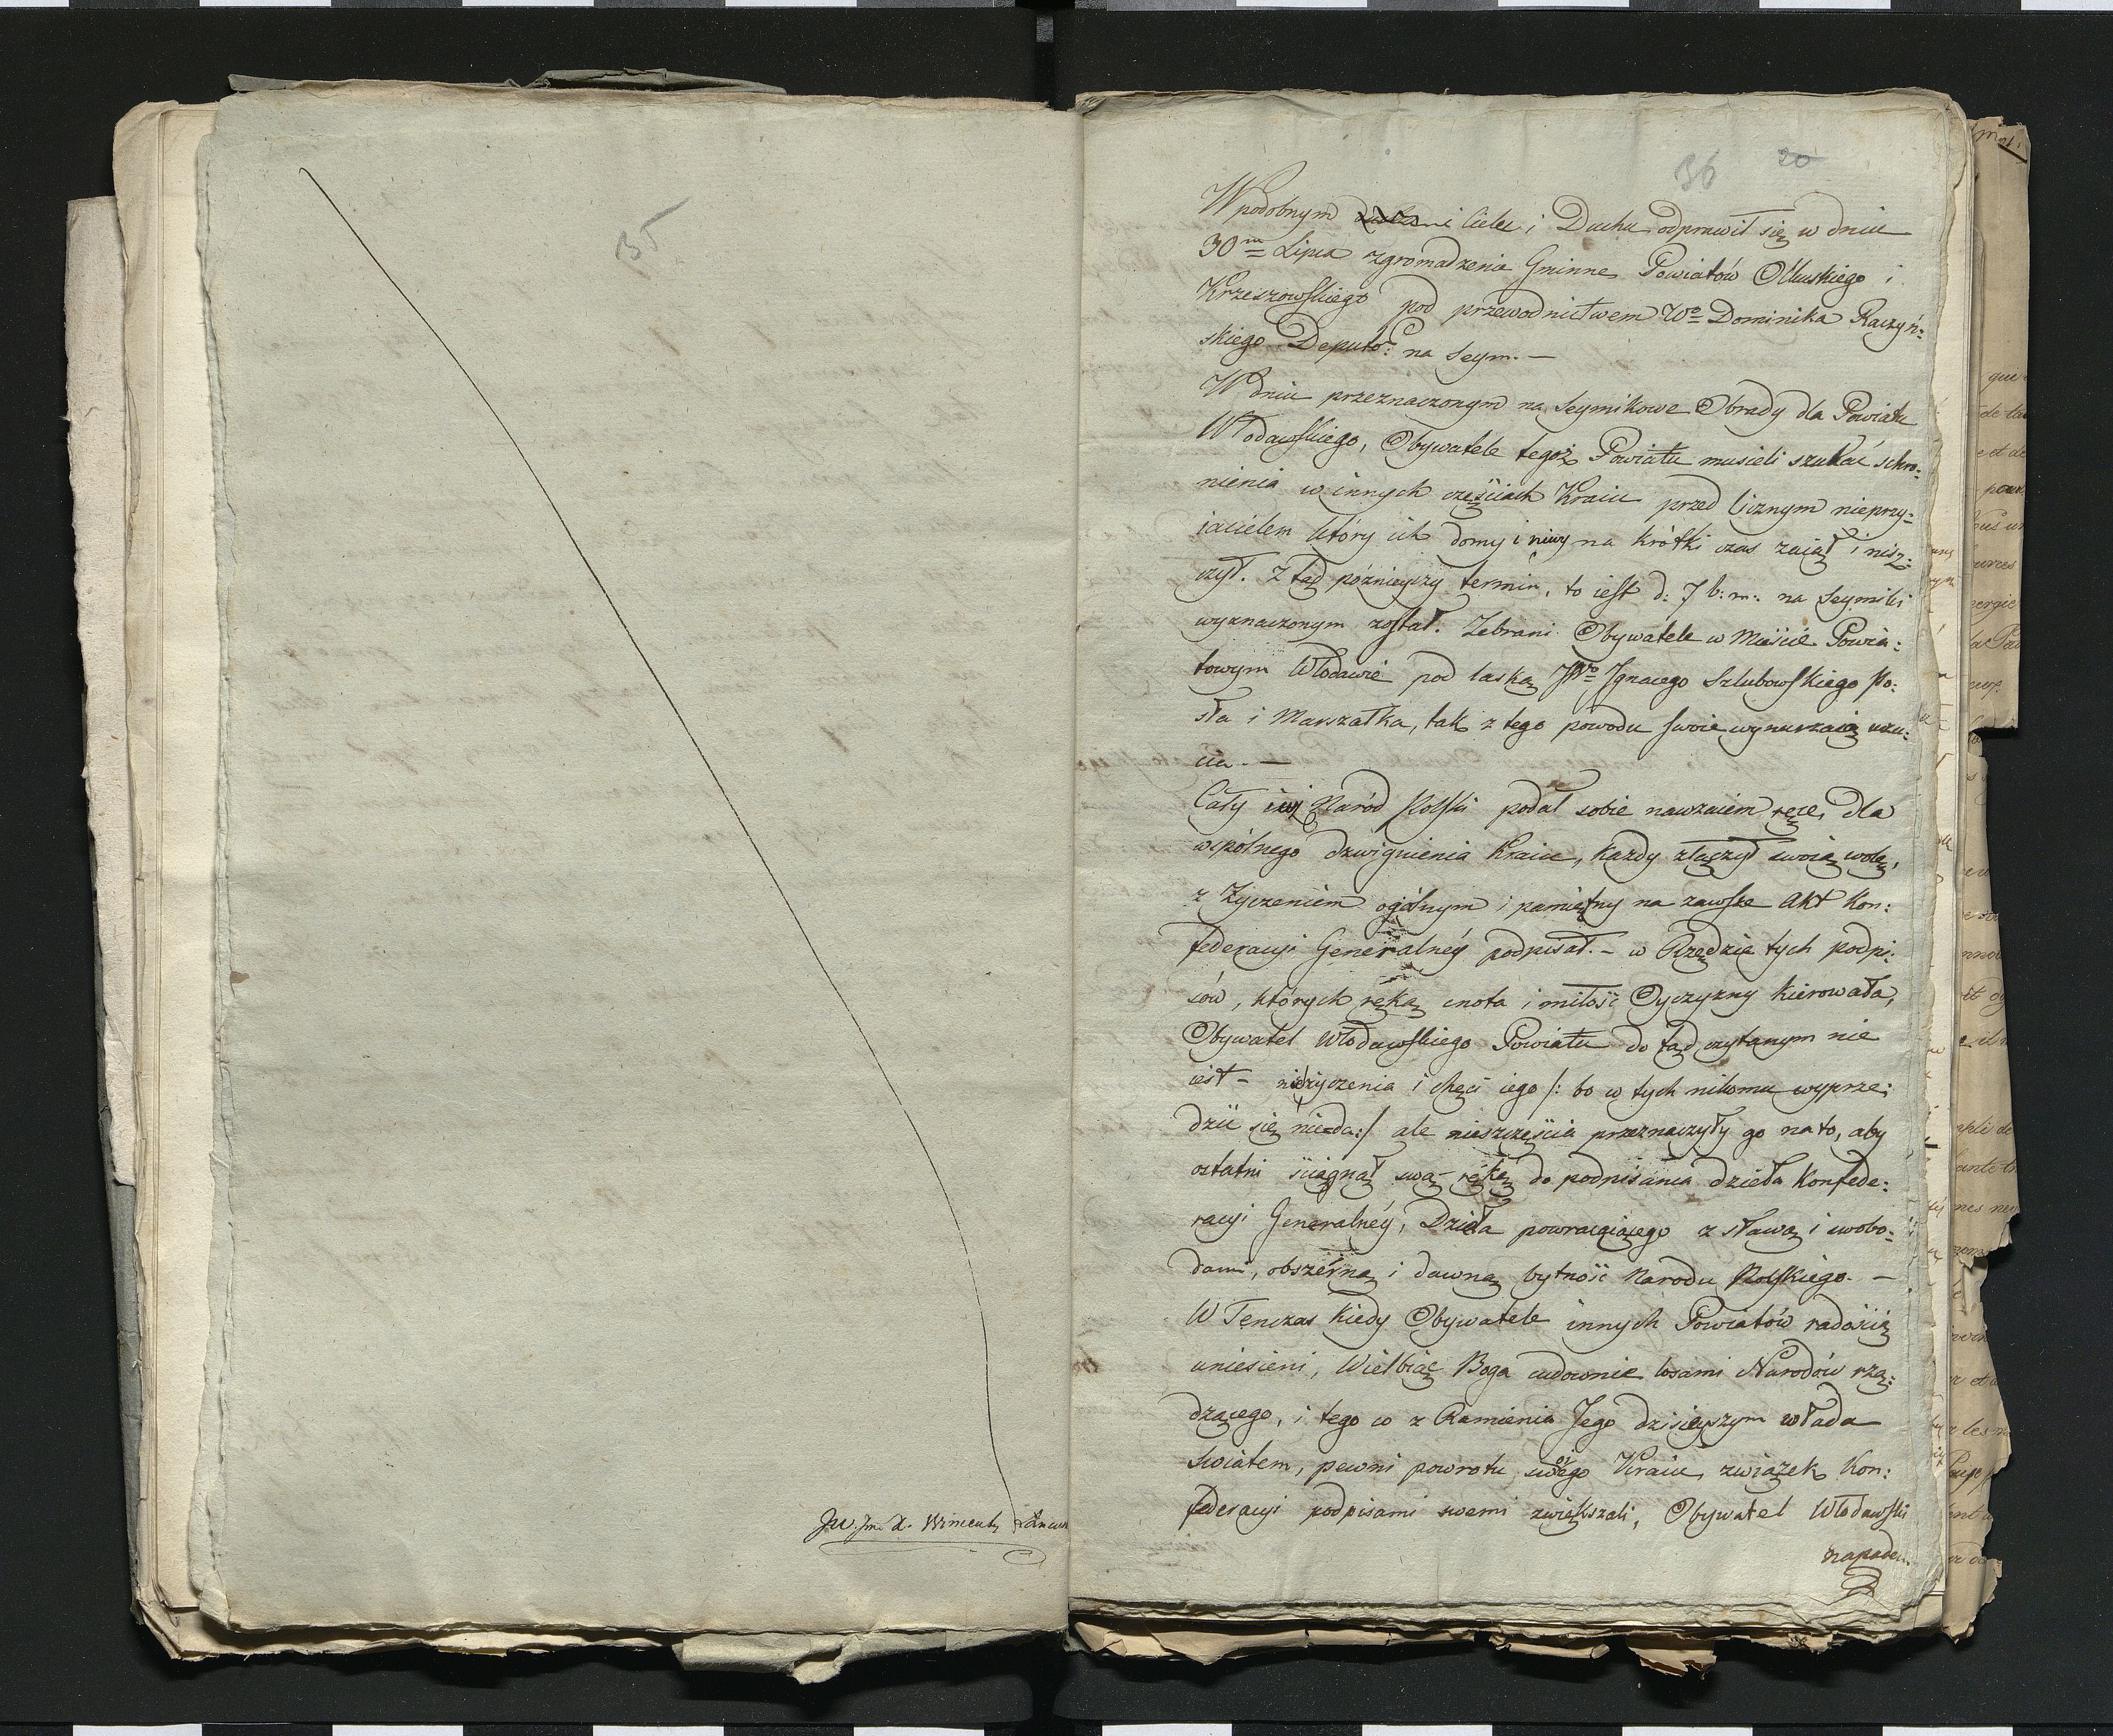 35
JW. Jmć X. Wincenty Łańcu
36 20
W podobnym Celu i Duchu odprawił się w dniu
30m Lipca zgromadzenie Gminne Powiatów Olkuskiego i
Krzeszowskiego pod przewodnictwem Wo Dominika Raczyń:
skiego Deputo: na Seym. —
W dniu przeznaczonym na Seymikowe Obrady dla Powiatu
Włodawskiego, Obywatele tegoż Powiatu musieli szukać schro:
nienia w innych częściach Kraiu przed licznym nieprzy:
iacielem który ich domy i niwy na krótki czas zaiął i nisz:
czył. Z tąd póznieyszy termin, to iest d: 7 b: m: na Seymiki
wyznaczonym został. Zebrani Obywatele w Mieście Powia:
towym Włodawie pod laską JWo Ignacego Szlubowskiego Po:
sła i Marszałka, tak z tego powodu swoie wynurzaią uczu:
cia. —
Cały iuż Naród Polski podał sobie nawzaiem ręce, dla
wspólnego dzwignienia Kraiu, każdy złączył swoią wolę,
z życzeniem ogólnym i pamiętny na zawsze Akt Kon:
federacyi Generalnéy podpisał. – w Rzędzie tych podpi:
sów, których ręką cnota i miłość Oyczyzny kierowała,
Obywatel Włodawskiego Powiatu do tąd czytanym nie
iest – nie życzenia i chęci iego /: bo w tych nikomu wyprze:
dzić się nieda:/ ale nieszczęścia przeznaczyły go na to, aby
ostatni ściągnął swą rękę do podpisania dzieła Konfede:
racyi Generalnéy, Dzieła powracaiącego z sławą i swobo:
dami, obszérną i dawną bytność Narodu Polskiego. —
W Tenczas kiedy Obywatele innych Powiatów radością
uniesieni, Wielbiąc Boga cudownie losami Narodów rzą:
dzącego, i tego co z Ramienia Jego dzisieyszym włada
swiatem, pewni powrotu swégo Kraiu, związek Kon:
federacyi podpisami swemi zwiększali, Obywatel Włodawski
napade